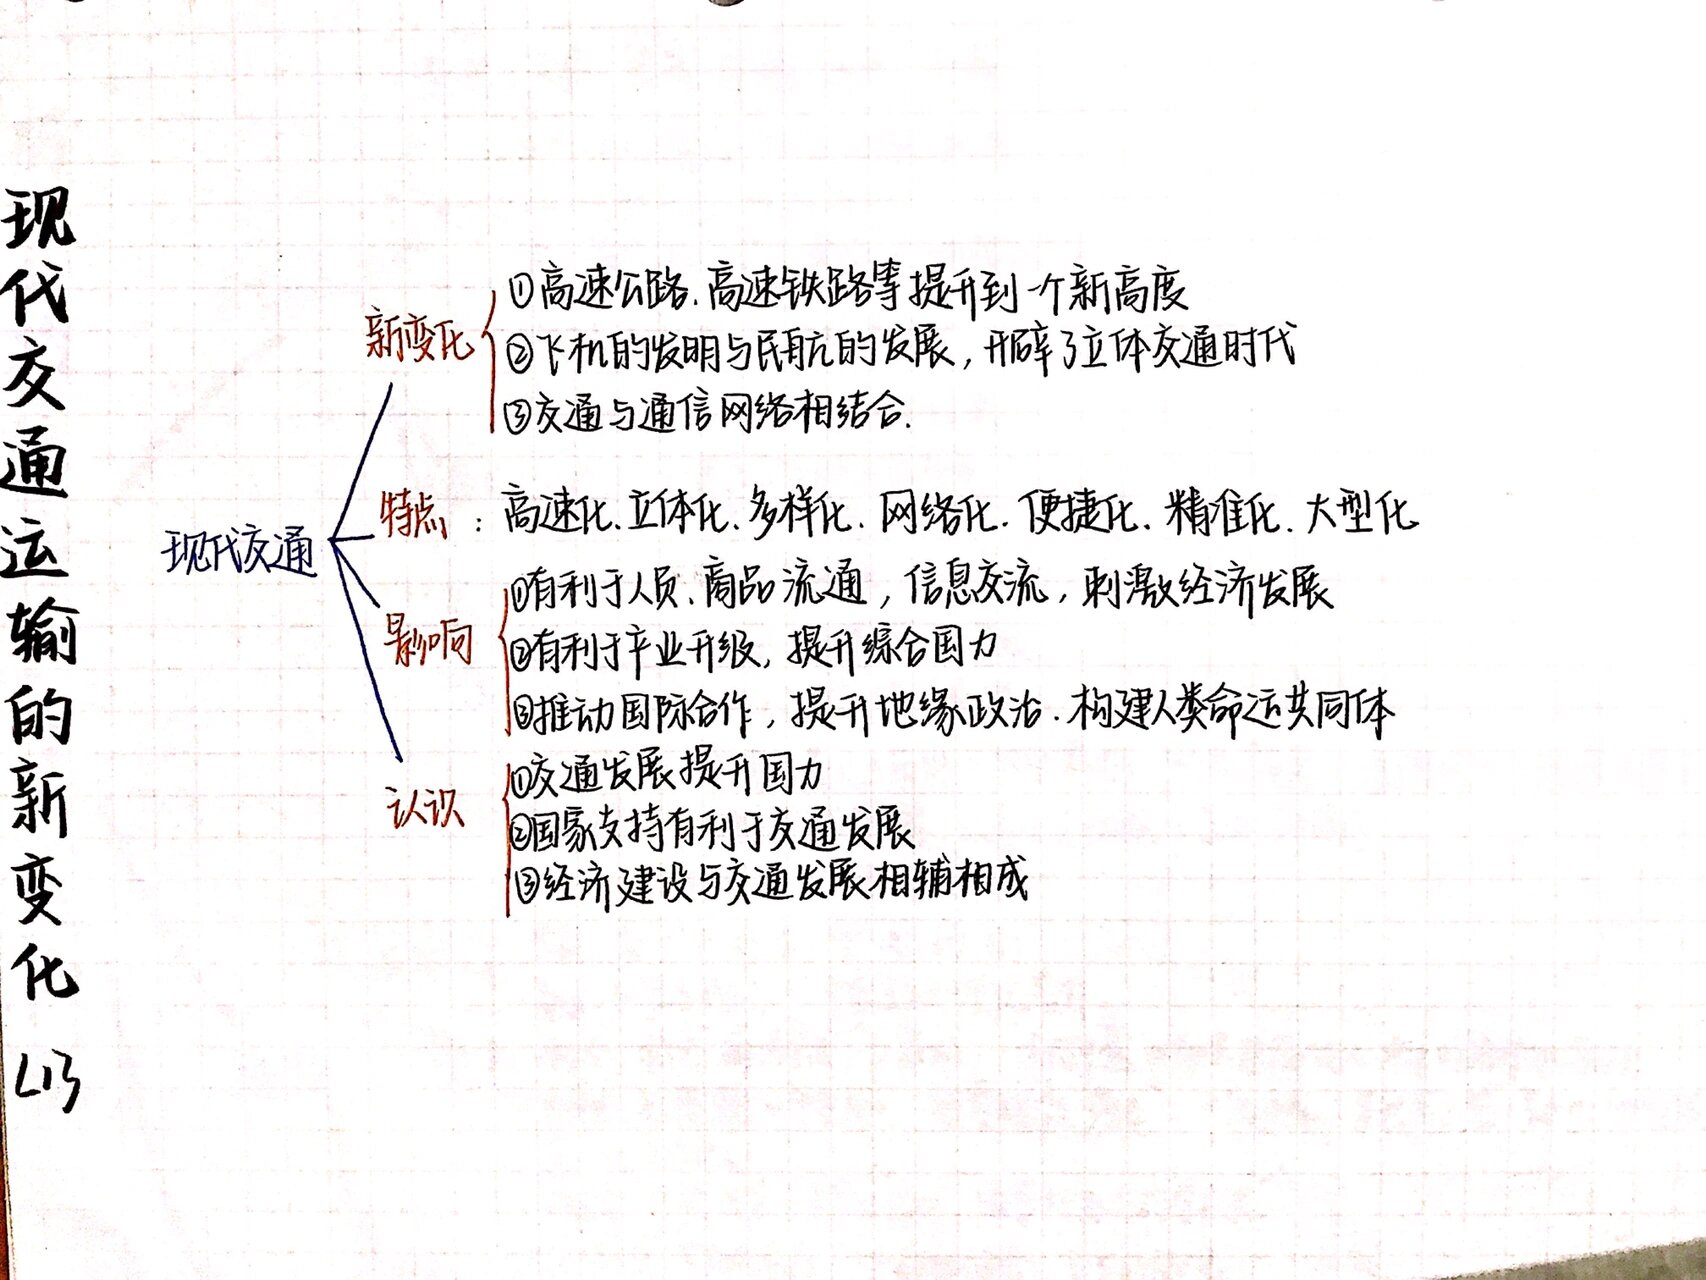 现代交通运输的新变化 L13
现代交通
新变化
①高速公路、高速铁路等提升到一个新高度
②飞机的发明与民航的发展，开辟了立体交通时代
③交通与通信网络相结合.
特点：高速化、立体化、多样化、网络化、便捷化、精准化、大型化
影响
①有利于人员、商品流通，信息交流，刺激经济发展
②有利于产业升级，提升综合国力
③推动国际合作，提升地缘政治.构建人类命运共同体
认识
①交通发展提升国力
②国家支持有利于交通发展
③经济建设与交通发展相辅相成